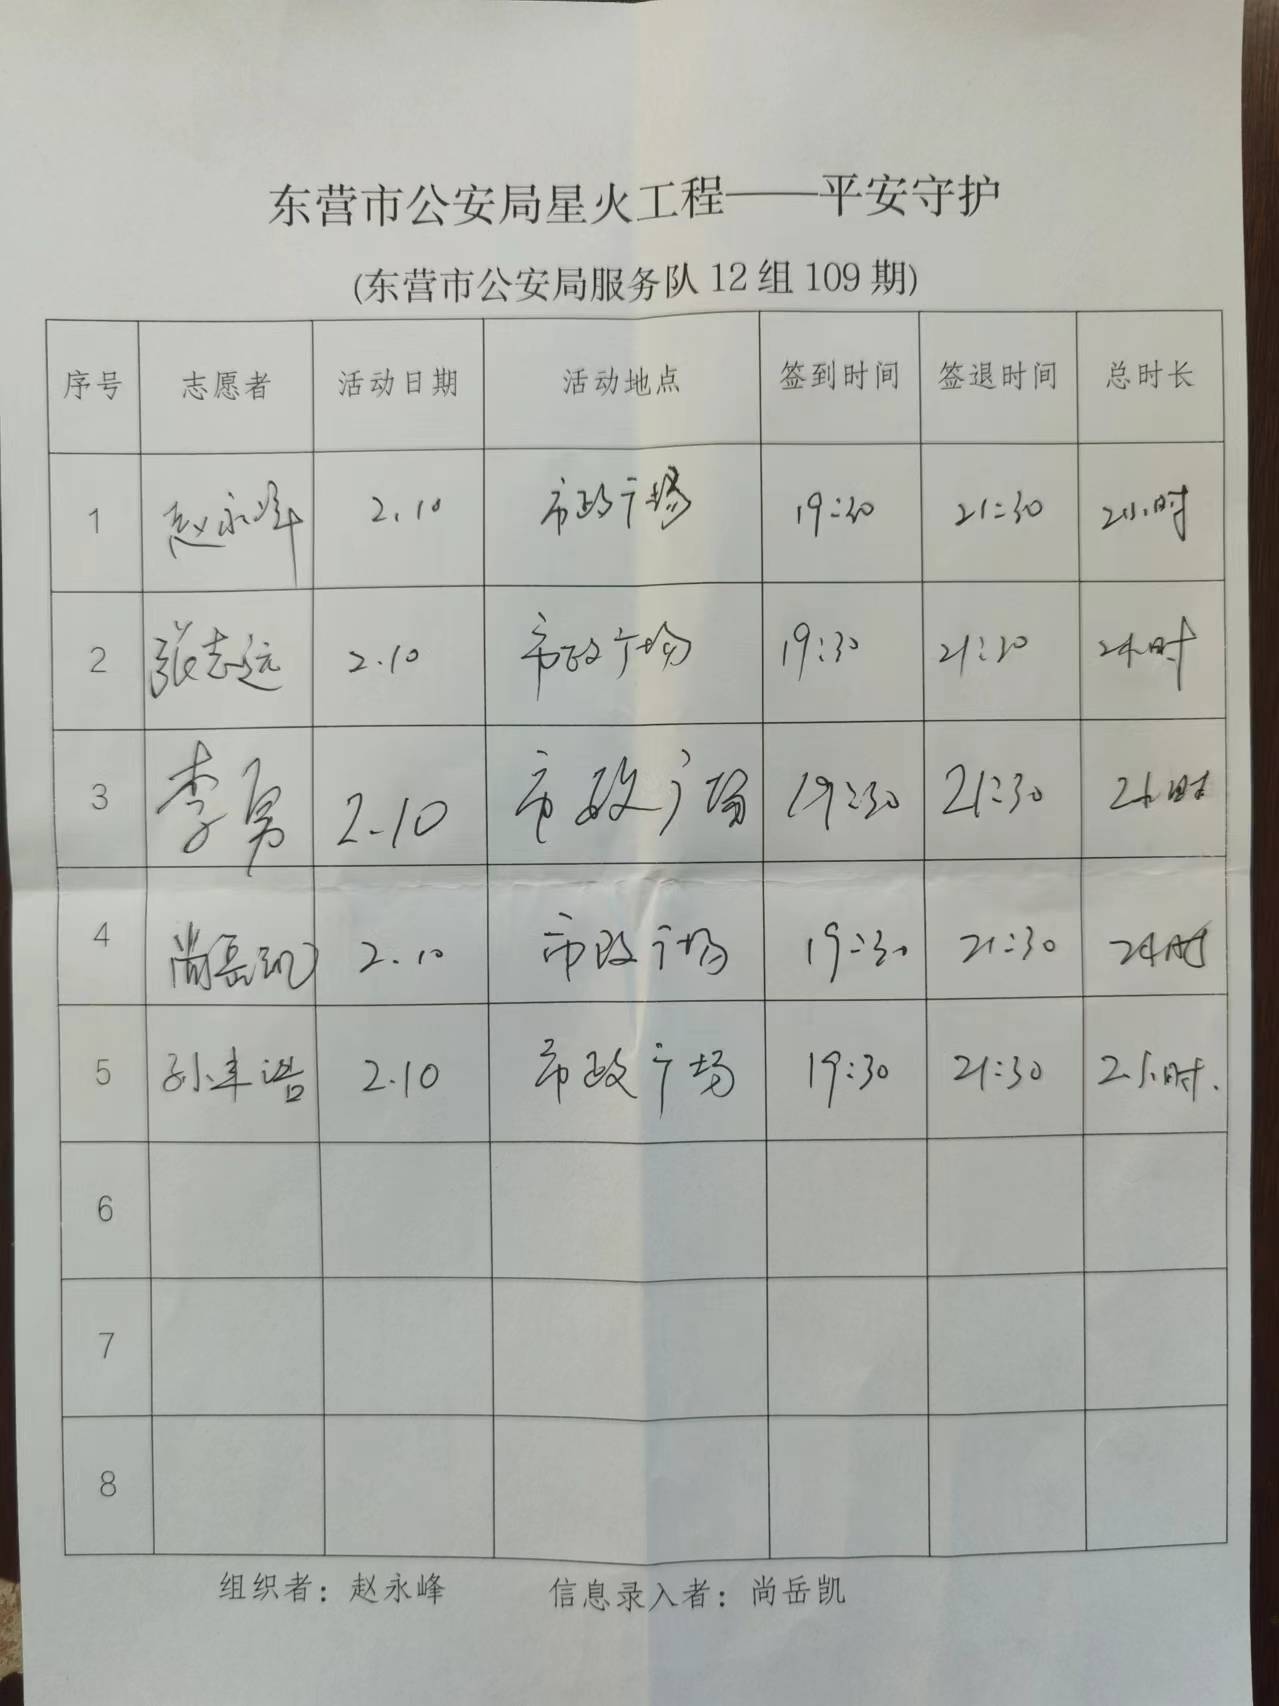 东营市公安局星火工程——平安守护
(东营市公安局服务队12组109期)
序号 志愿者 活动日期 活动地点 签到时间 签退时间 总时长
1 赵永峰 2.10 市政广场 19:30 21:30 2小时
2 张志远 2.10 市政广场 19:30 21:30 2小时
3 李勇 2.10 市政广场 19:30 21:30 2小时
4 尚岳凯 2.10 市政广场 19:30 21:30 2小时
5 孙丰浩 2.10 市政广场 19:30 21:30 2小时.
6
7
8
组织者：赵永峰 信息录入者：尚岳凯